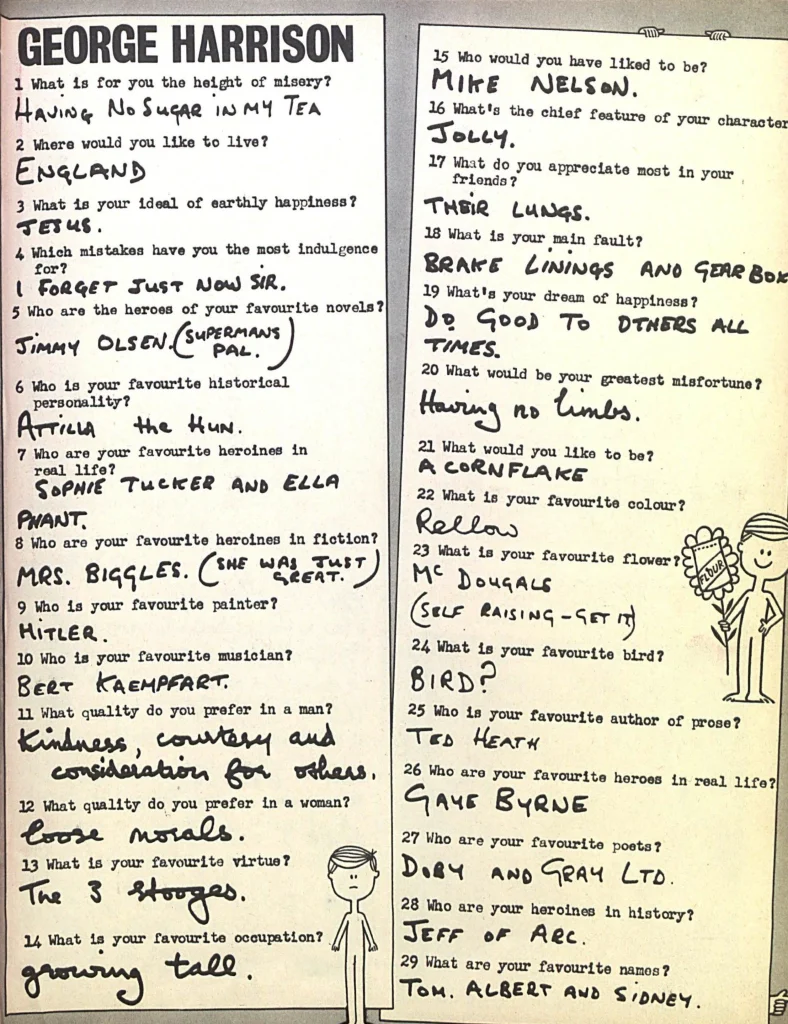 GEORGE HARRISON
1 What is for you the height of misery?
HAVING NO SUGAR IN MY TEA
2 Where would you like to live?
ENGLAND
3 What is your ideal of earthly happiness?
JESUS.
4 Which mistakes have you the most indulgence
for?
I FORGET JUST NOW SIR.
5 Who are the heroes of your favourite novels?
JIMMY OLSEN. (SUPERMANS
PAL.)
6 Who is your favourite historical
personality?
ATTILLA the HUN.
7 Who are your favourite heroines in
real life?
SOPHIE TUCKER AND ELLA
PHANT.
8 Who are your favourite heroines in fiction?
MRS. BIGGLES. (SHE WAS JUST
GREAT.)
9 Who is your favourite painter?
HITLER.
10 Who is your favourite musician?
BERT KAEMPFART.
11 What quality do you prefer in a man?
Kindness, courtesy and
consideration for others.
12 What quality do you prefer in a woman?
loose morals.
13 What is your favourite virtue?
The 3 stooges.
14 What is your favourite occupation?
growing tall.
15 Who would you have liked to be?
MIKE NELSON.
16 What's the chief feature of your character
JOLLY.
17 What do you appreciate most in your
friends?
THEIR LUNGS.
18 What is your main fault?
BRAKE LININGS AND GEAR BOX
19 What's your dream of happiness?
DO GOOD TO OTHERS ALL
TIMES.
20 What would be your greatest misfortune?
Having no limbs.
21 What would you like to be?
A CORNFLAKE
22 What is your favourite colour?
Rellow
23 What is your favourite flower?
Mc DOUGALS
(SELF RAISING - GET IT)
FLOUR
24 What is your favourite bird?
BIRD?
25 Who is your favourite author of prose?
TED HEATH
26 Who are your favourite heroes in real life?
GAYE BYRNE
27 Who are your favourite poets?
DOBY AND GRAY LTD.
28 Who are your heroines in history?
JEFF OF ARC.
29 What are your favourite names?
TOM. ALBERT AND SIDNEY.